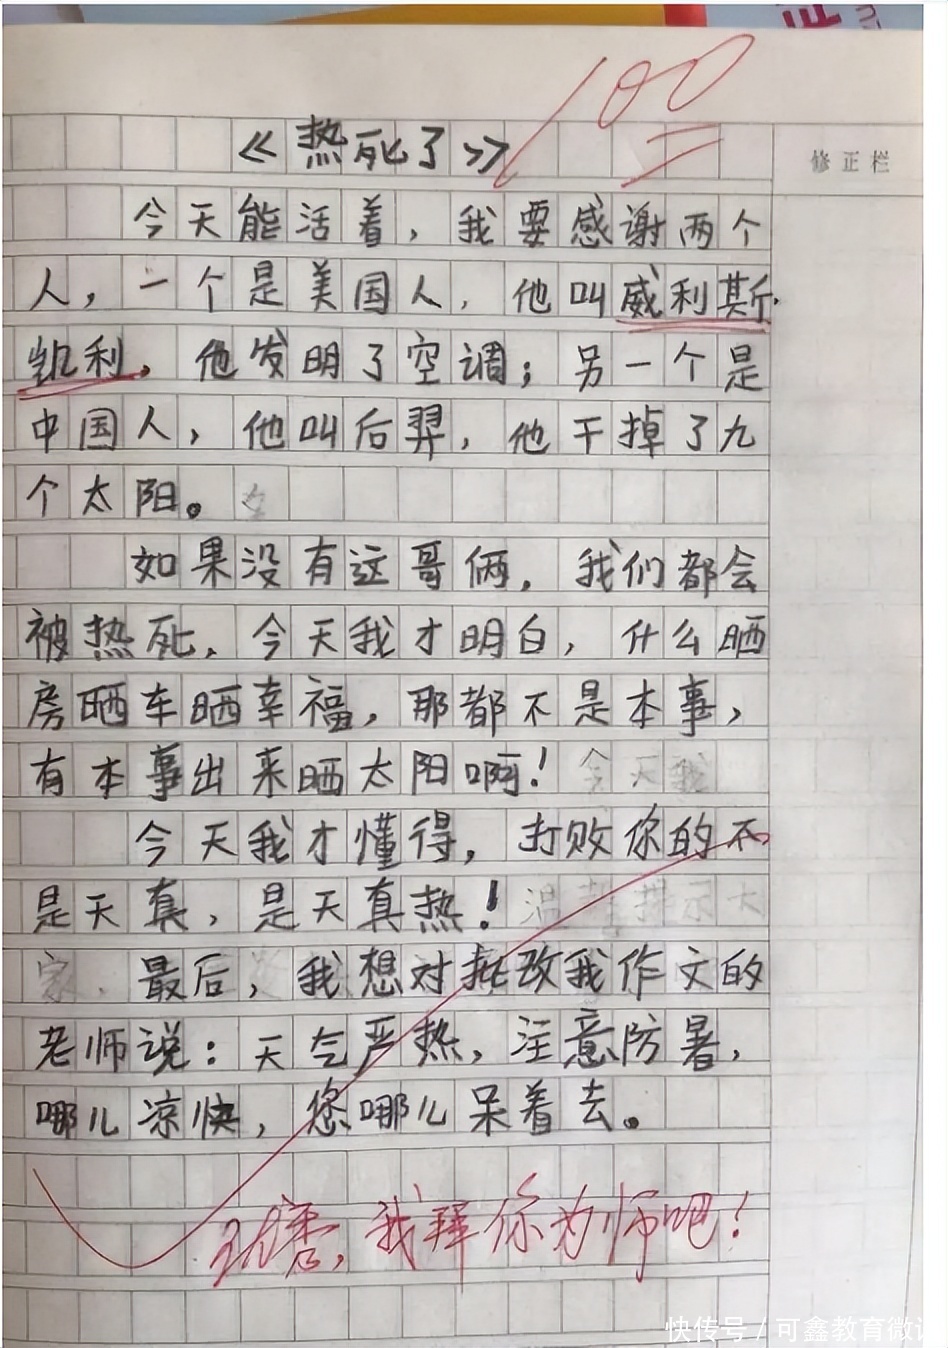 100
《热死了》
修正栏
今天能活着，我要感谢两个
人，一个是美国人，他叫威利斯·
凯利，他发明了空调；另一个是
中国人，他叫后羿，他干掉了九
个太阳。
如果没有这哥俩，我们都会
被热死，今天我才明白，什么晒
房晒车晒幸福，那都不是本事，
有本事出来晒太阳啊！今天我
今天我才懂得，打败你的不
是天真，是天真热！温馨提示大
家．最后，我想对批改我作文的
老师说：天气严热，注意防暑，
哪儿凉快，您哪儿呆着去。
我拜你为师吧！
快传号／可鑫教育微